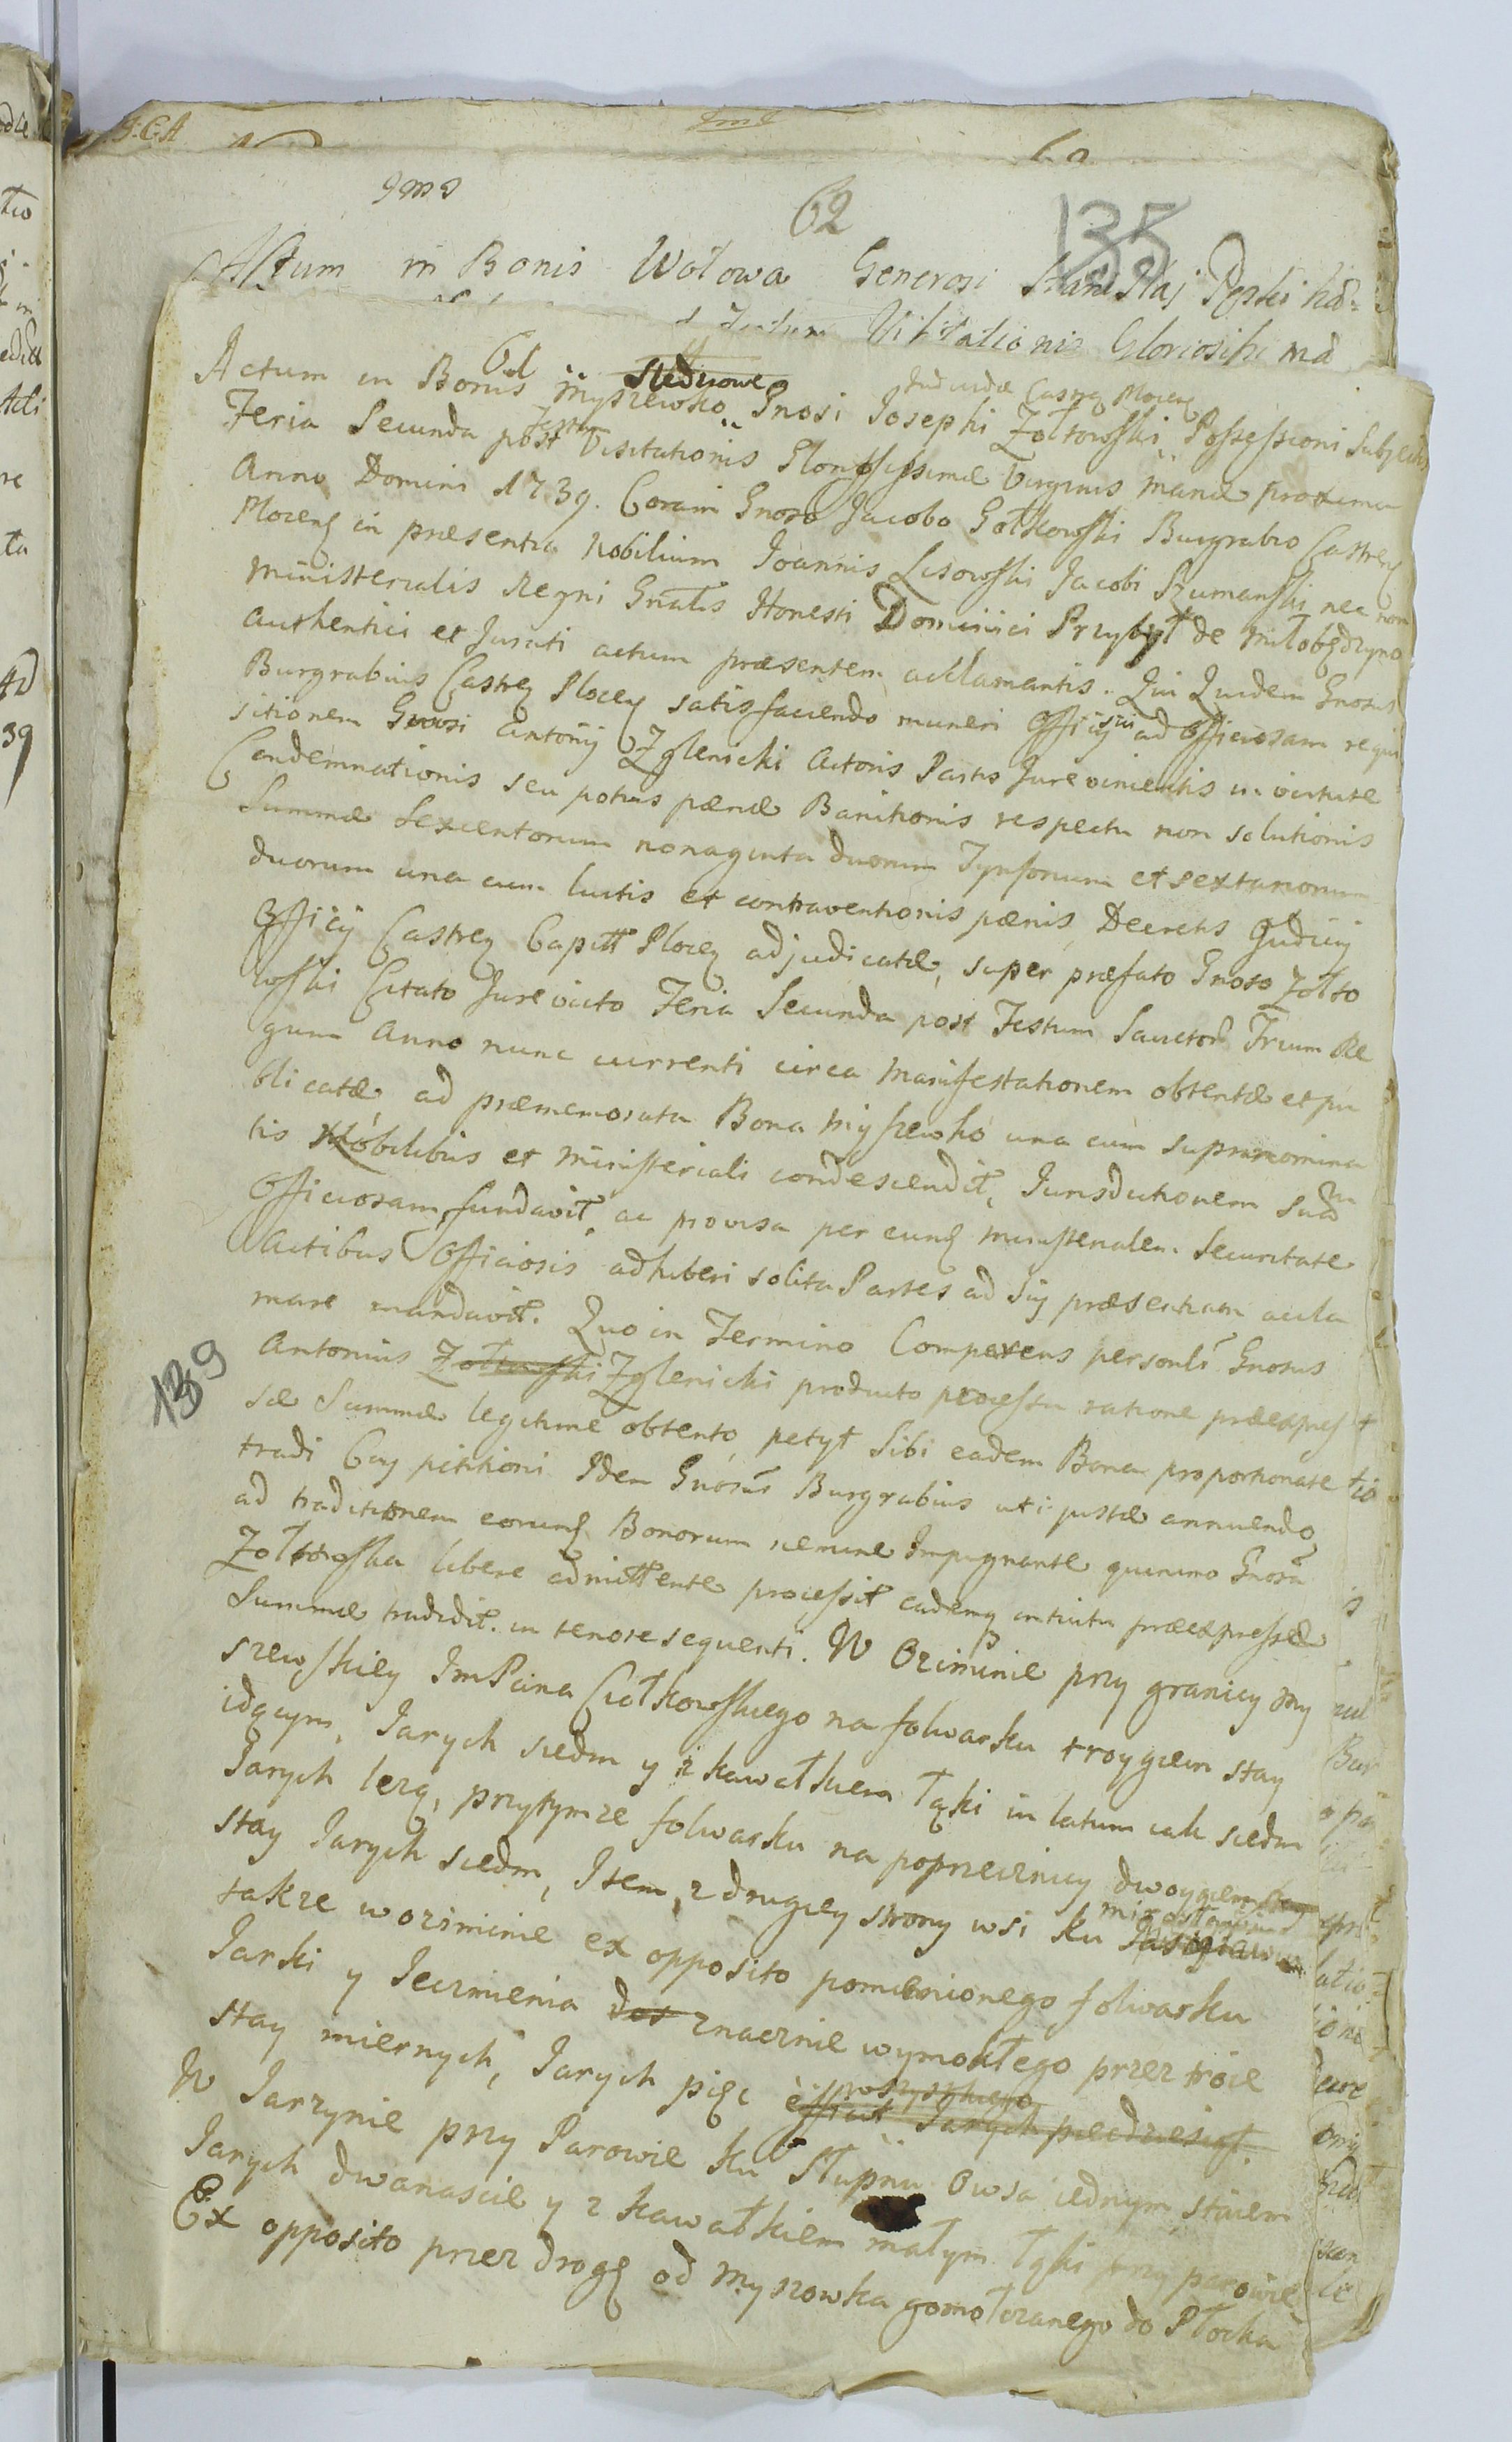 62
135
Actum in Bonis Wolowa Generosi Stanislaj Pepski
Visitationis Gloriosissi ma
61
Actum in Bonis Myszewko Gnosi Josephi Zołtowski Possessioni Subjectis
Iudicidæ Castreꝫ Ploceꝫ
Feria Secunda post Festum Visitationis Gloriosissimæ Virginis Mariæ proxima
Anno Domini 1739. Coram Gnoso Jacobo Gołkowski Burgrabio Castreꝫ
Ploceꝫ in præsentia Nobilium Joannis Lisowski Jacobi Szumanski nec non
Ministerialis Regni Gnalis Honesti Dominici Przybył de Miłobędzyno
authentici et Jurati actum præsentem acclamantis. Qui Quidem Gnosus
Burgrabius Castreꝫ Ploceꝫ satisfaciendo muneri Officÿ sui ad Officiosam requi
sitionem Gnosi Antonÿ Zglenicki Actoris Partis Jurevincentis in virtute
Condemnationis seu potius pænæ Banitionis respectu non solutionis
Summæ Sexcentorum nonaginta duorum Tynfonum et sextanorum
duorum una cum luitis et contraventionis pænis, Decretis Judicÿ
Officÿ Castreꝫ Capitt Ploceꝫ adjudicatæ, super præfato Gnoso Zołto
wski Citato Jurevicto Feria Secunda post Festum Sanctor Trium Re
gum Anno nunc currenti circa Manifestationem obtentæ et pu
blicatæ, ad præmemorata Bona Myszewko una cum supranomina
tis Nobilibus et Ministeriali condescendit, Jurisdictionem suam
Officiosam fundavit, ac provisa per eunꝗ Ministerialem Securitate
Actibus Officiosis adhiberi solita Partes ad Sui præsentiam accla
mare mandavit. Quo in Termino Comparens personlr Gnosus
Antonius Zołtowski Zglenicki producto processu ratione præexpres
139
sæ Summæ legitime obtento, petyt sibi eadem Bona proportionate
tradi Cuj petitioni Idem Gnosus Burgrabius uti justæ annuendo
ad traditionem eorunꝗ Bonorum nemine Impugnante quinimo Gnosa
Zołtowska libere admittente processit eademꝗ intuitu præexpressæ
Summæ tradidit in tenore sequenti. W Oziminie przy granicy My
szewskiey Im Pana Ciołkowskiego na folwarku troygiem stay
idącym, Jarych siedm y z kawałkiem łąki in latum iak siedm
Jarych lezą, przytymze folwarku na poprzecznicy dwoygiem stay
stay Jarych siedm, Item, z drugiey strony wsi ku
takze w oziminie ex opposito pomienionego folwarku
Jarki y Jeczmienia znacznie wymokłego przez troie
stay miernych, Jarych pięc efficit Jarych piedziesiąt
W Jarzynie przy Parowie ku Słupnu Owsa iednym staiem
Jarych dwanascie y z kawałkiem małym łąki przy parowie
Ex opposito przez drogę od Myszowka gomołczanego do Płocka